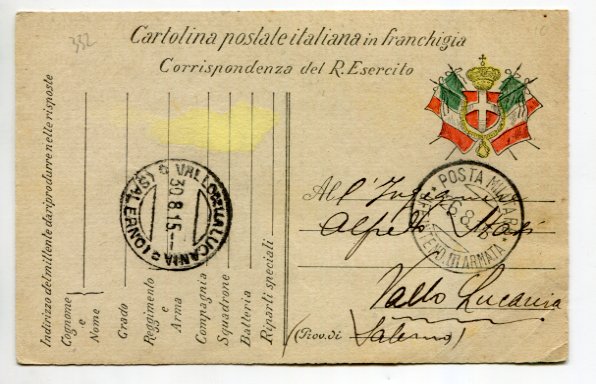 332
Cartolina postale italiana in franchigia
Corrispondenza del R. Esercito
Indirizzo del mittente da riprodurre nelle risposte
Cognome
e
Nome
Grado
Reggimento
e
Arma
Compagnia
Squadrone
Batteria
Riparti speciali
VALLO DELLA LUCANIA
(SALERNO)
30.8.15
POSTA MILITARE
INTEND. III ARMATA
All'Ingegnere
Alfredo
Vallo Lucania
(Prov. di Salerno)